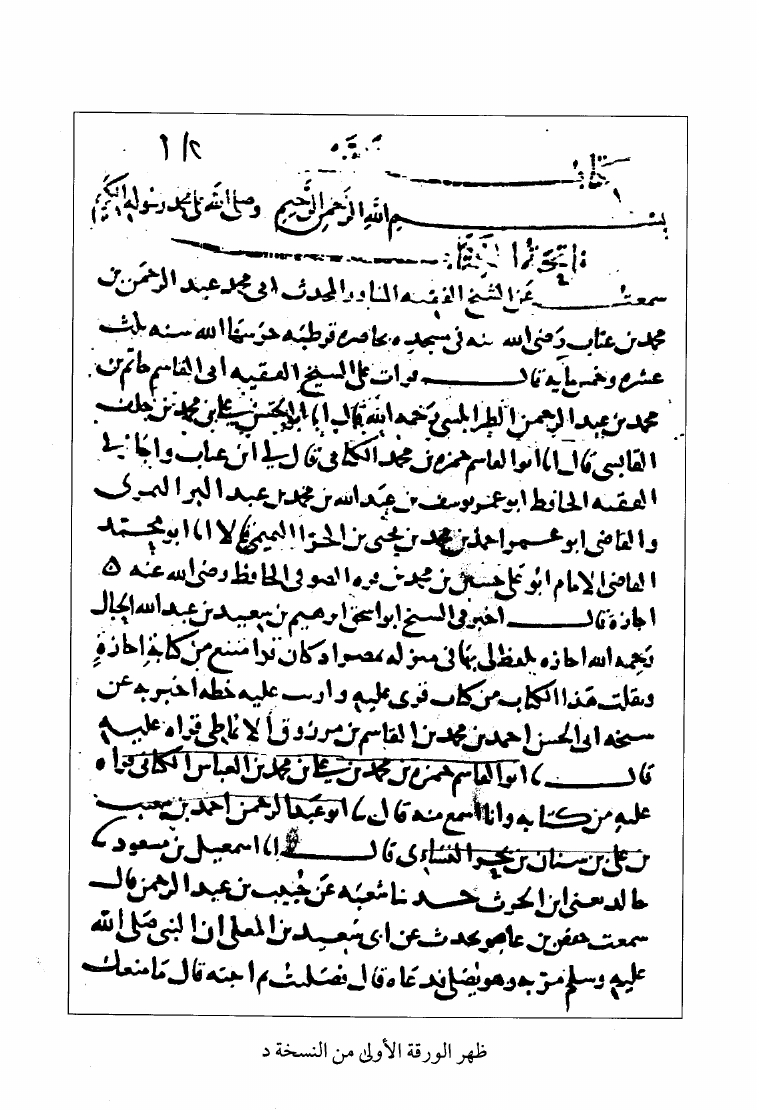 ١/٢
كتاب
بسم الله الرحمن الرحيم وصلى الله على محمد رسوله الكريم
فاتحة الكتاب
سمعت على الشيخ الفقيه المحدث ابى محمد عبد الرحمن بن
محمد بن عتاب رضى الله عنه فى مسجده بحاضرة قرطبه حرسها الله سنه ثلث
عشره وخمس مايه قال قرات على الشيخ الفقيه ابى القاسم حاتم بن
محمد بن عبد الرحمن الطرابلسى رحمه الله قال انا ابو الحسن على بن محمد بن خلف
القابسى قال انا ابو القاسم حمزه بن محمد الكنانى قال لى ابن عتاب واجازنى
الفقيه الحافظ ابو عمر يوسف بن عبد الله بن محمد بن عبد البر النمرى
والقاضى ابو عمر احمد بن محمد بن يحيى بن الحذا التميمى قالا انا ابو محمد
القاضى الامام ابو على حسين بن محمد بن فيره الصوفى الحافظ رضى الله عنه
اجازة قال اخبرنى الشيخ ابو اسحق ابرهيم بن سعيد بن عبد الله الحبال
رحمه الله اجازه بلفظه لى بها فى منزله بمصر اذ كان قد امتنع من كتابة اجازة
ونقلت هذا الكتاب من كتاب قرى عليه ورايت عليه خطه اخبر به عن
شيخه ابى الحسن احمد بن محمد بن القاسم بن مرزوق الانماطى قراه عليه
قال انا ابو القاسم حمزه بن محمد بن على بن محمد بن العباس الكنانى قراه
عليه من كتابه وانا اسمع منه قال انا ابو عبد الرحمن احمد بن شعيب
بن على بن سنان بن بحر النساءى قال انا اسمعيل بن مسعود نا
خالد يعنى ابن الحرث حدثنا شعبه عن خبيب بن عبد الرحمن قال
سمعت حفص بن عاصم يحدث عن ابى سعيد بن المعلى ان النبى صلى الله
عليه وسلم مر به وهو يصلى فدعاه قال فصليت ثم اجبته قال ما منعك
ظهر الورقة الأولى من النسخة د